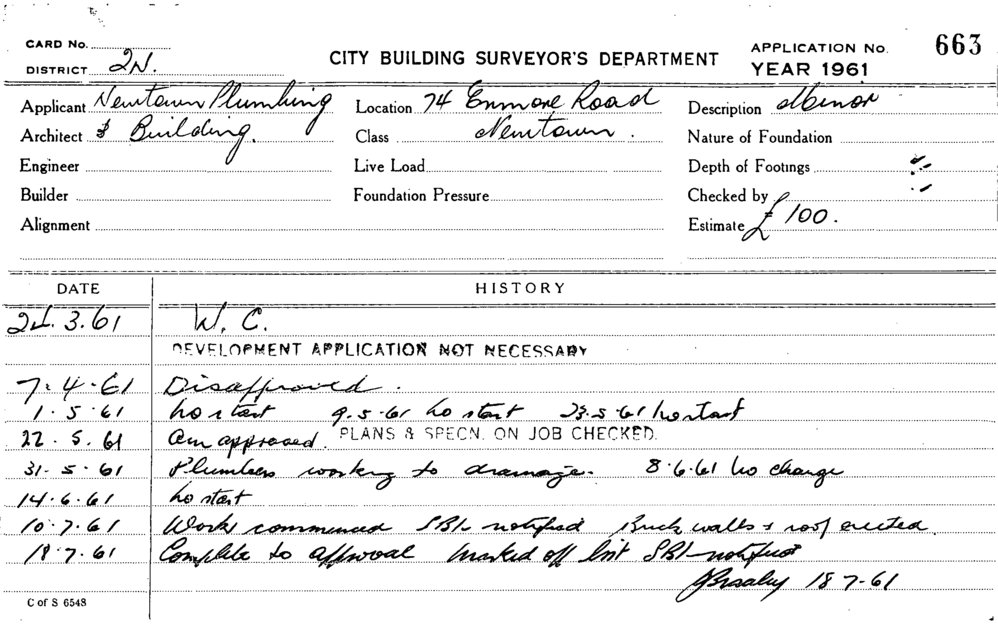 CARD No.
DISTRICT 2N.
CITY BUILDING SURVEYOR'S DEPARTMENT
APPLICATION No. 663
YEAR 1961
Applicant Newtown Plumbing
Architect & Building.
Engineer
Builder
Alignment
Location 74 Enmore Road
Class Newtown.
Live Load
Foundation Pressure
Description Minor
Nature of Foundation
Depth of Footings
Checked by
Estimate £100.
DATE HISTORY
24.3.61 W. C.
DEVELOPMENT APPLICATION NOT NECESSARY
7.4.61 Disapproved.
1.5.61 No start 9.5.61 No start 23.5.61 No start
22.5.61 approved. PLANS & SPECN. ON JOB CHECKED.
31.5.61 Plumbers working to drainage. 8.6.61 No change
14.6.61 No start
10.7.61 Works commenced SBI notified Brick walls & roof erected
18.7.61 Complete to approval marked off list SBI notified
18 7-61
C of S 6548